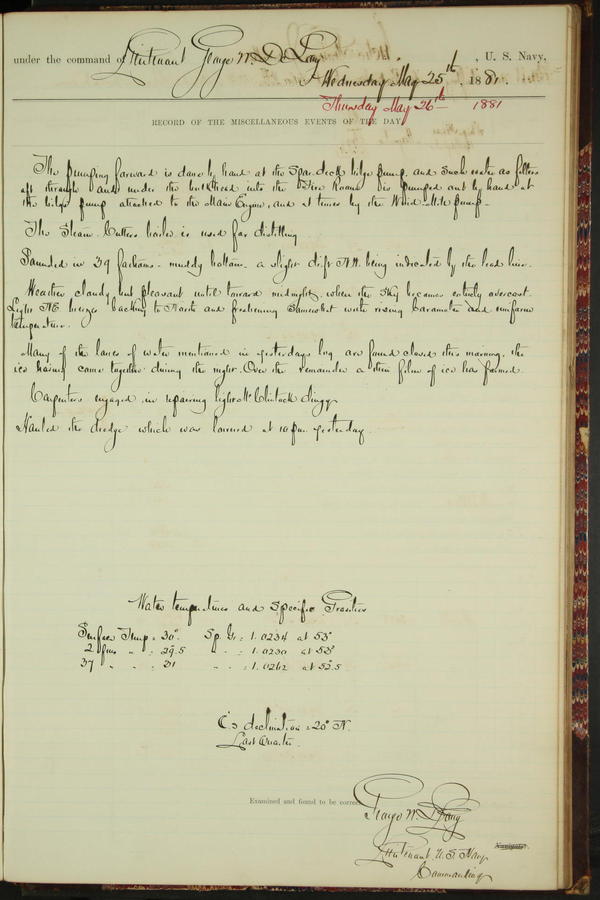 under the command of Lieutenant George W. De Long, U. S. Navy,
Wednesday May 25th, 1881.
Thursday May 26th 1881
RECORD OF THE MISCELLANEOUS EVENTS OF THE DAY
The pumping forward is done by hand at the spar deck bilge pump, and such water as filters
aft through and under the bulkhead into the Fire Room is pumped out by hand at
the bilge pump attached to the Main Engine, and at times by the Wind Mill pump.
The Steam Cutters boiler is used for distilling
Sounded in 39 fathoms - muddy bottom - a slight drift N.W. being indicated by the lead line.
Weather cloudy but pleasant until toward midnight, when the sky becomes entirely overcast.
Light NE breeze backing to North and freshening somewhat with rising barometer and uniform
temperature.
Many of the lanes of water mentioned in yesterdays log are found closed this morning, the
ice having come together during the night. Over the remainder a thin film of ice has formed.
Carpenters engaged in repairing light McClintock dinggy
Hauled the dredge which was lowered at 10 p.m. yesterday
Water temperatures and Specific Gravities
Surface Temp = 30°. Sp. Gr = 1.0234 at 53°
2 fms " = 29.5 " " = 1.0230 at 53°
37 " " = 31 " " = 1.0262 at 52.5
☾'s declination = 20° N.
Last Quarter.
Examined and found to be correct.
George W. De Long
Lieutenant U.S. Navy
Navigator.
Commanding